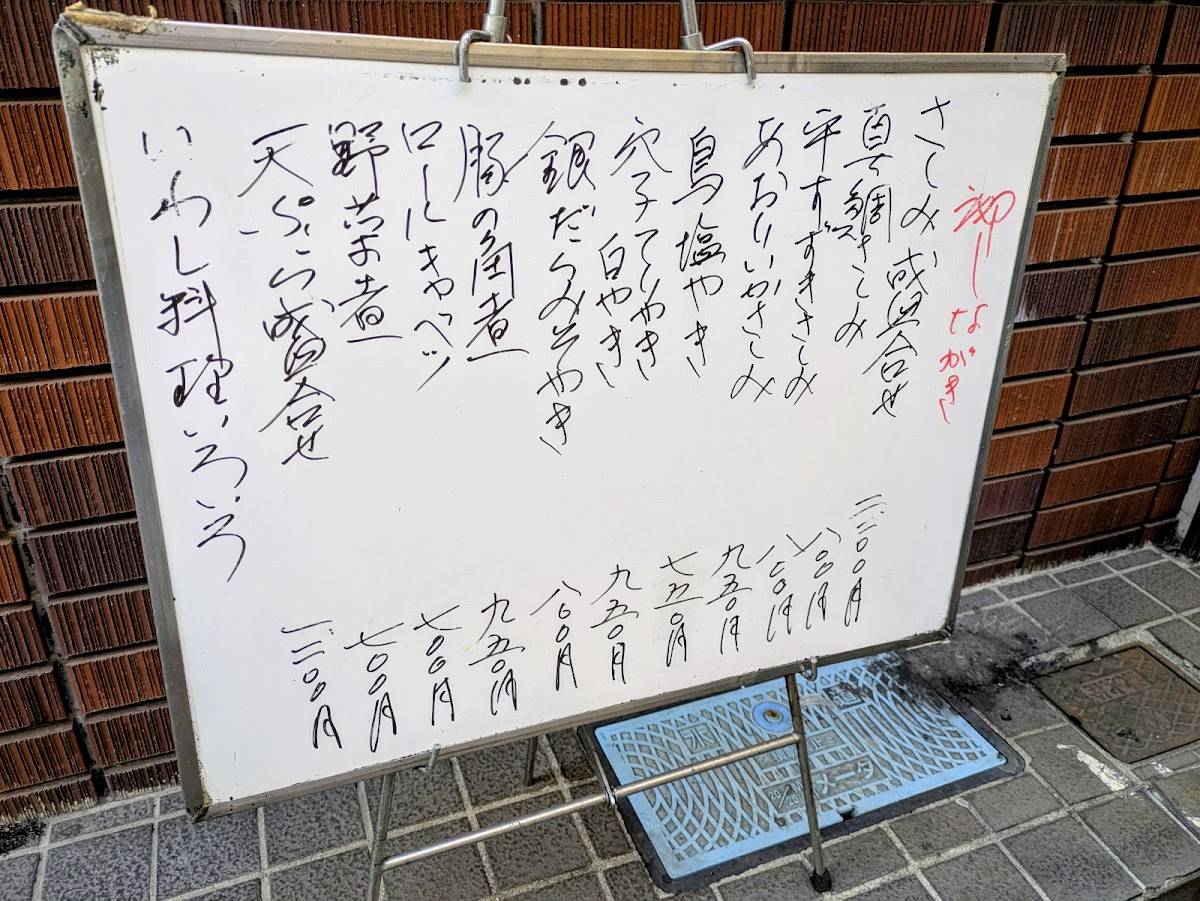 御しながき
さしみ盛合せ
真鯛さしみ 八〇〇円
平すずきさしみ 八〇〇円
あおりいかさしみ 九五〇円
鳥塩やき 七五〇円
穴子てりやき 九五〇円
白やき
銀だらみそやき 八〇〇円
豚の角煮 九五〇円
ロールキャベツ 七〇〇円
野菜煮 七〇〇円
天ぷら盛合せ 一二〇〇円
いわし料理いろいろ